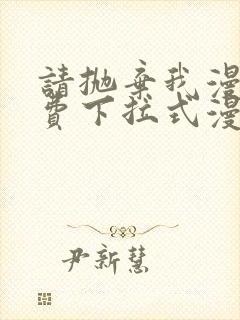 請抛棄我漫
費下拉式漫
尹新慧